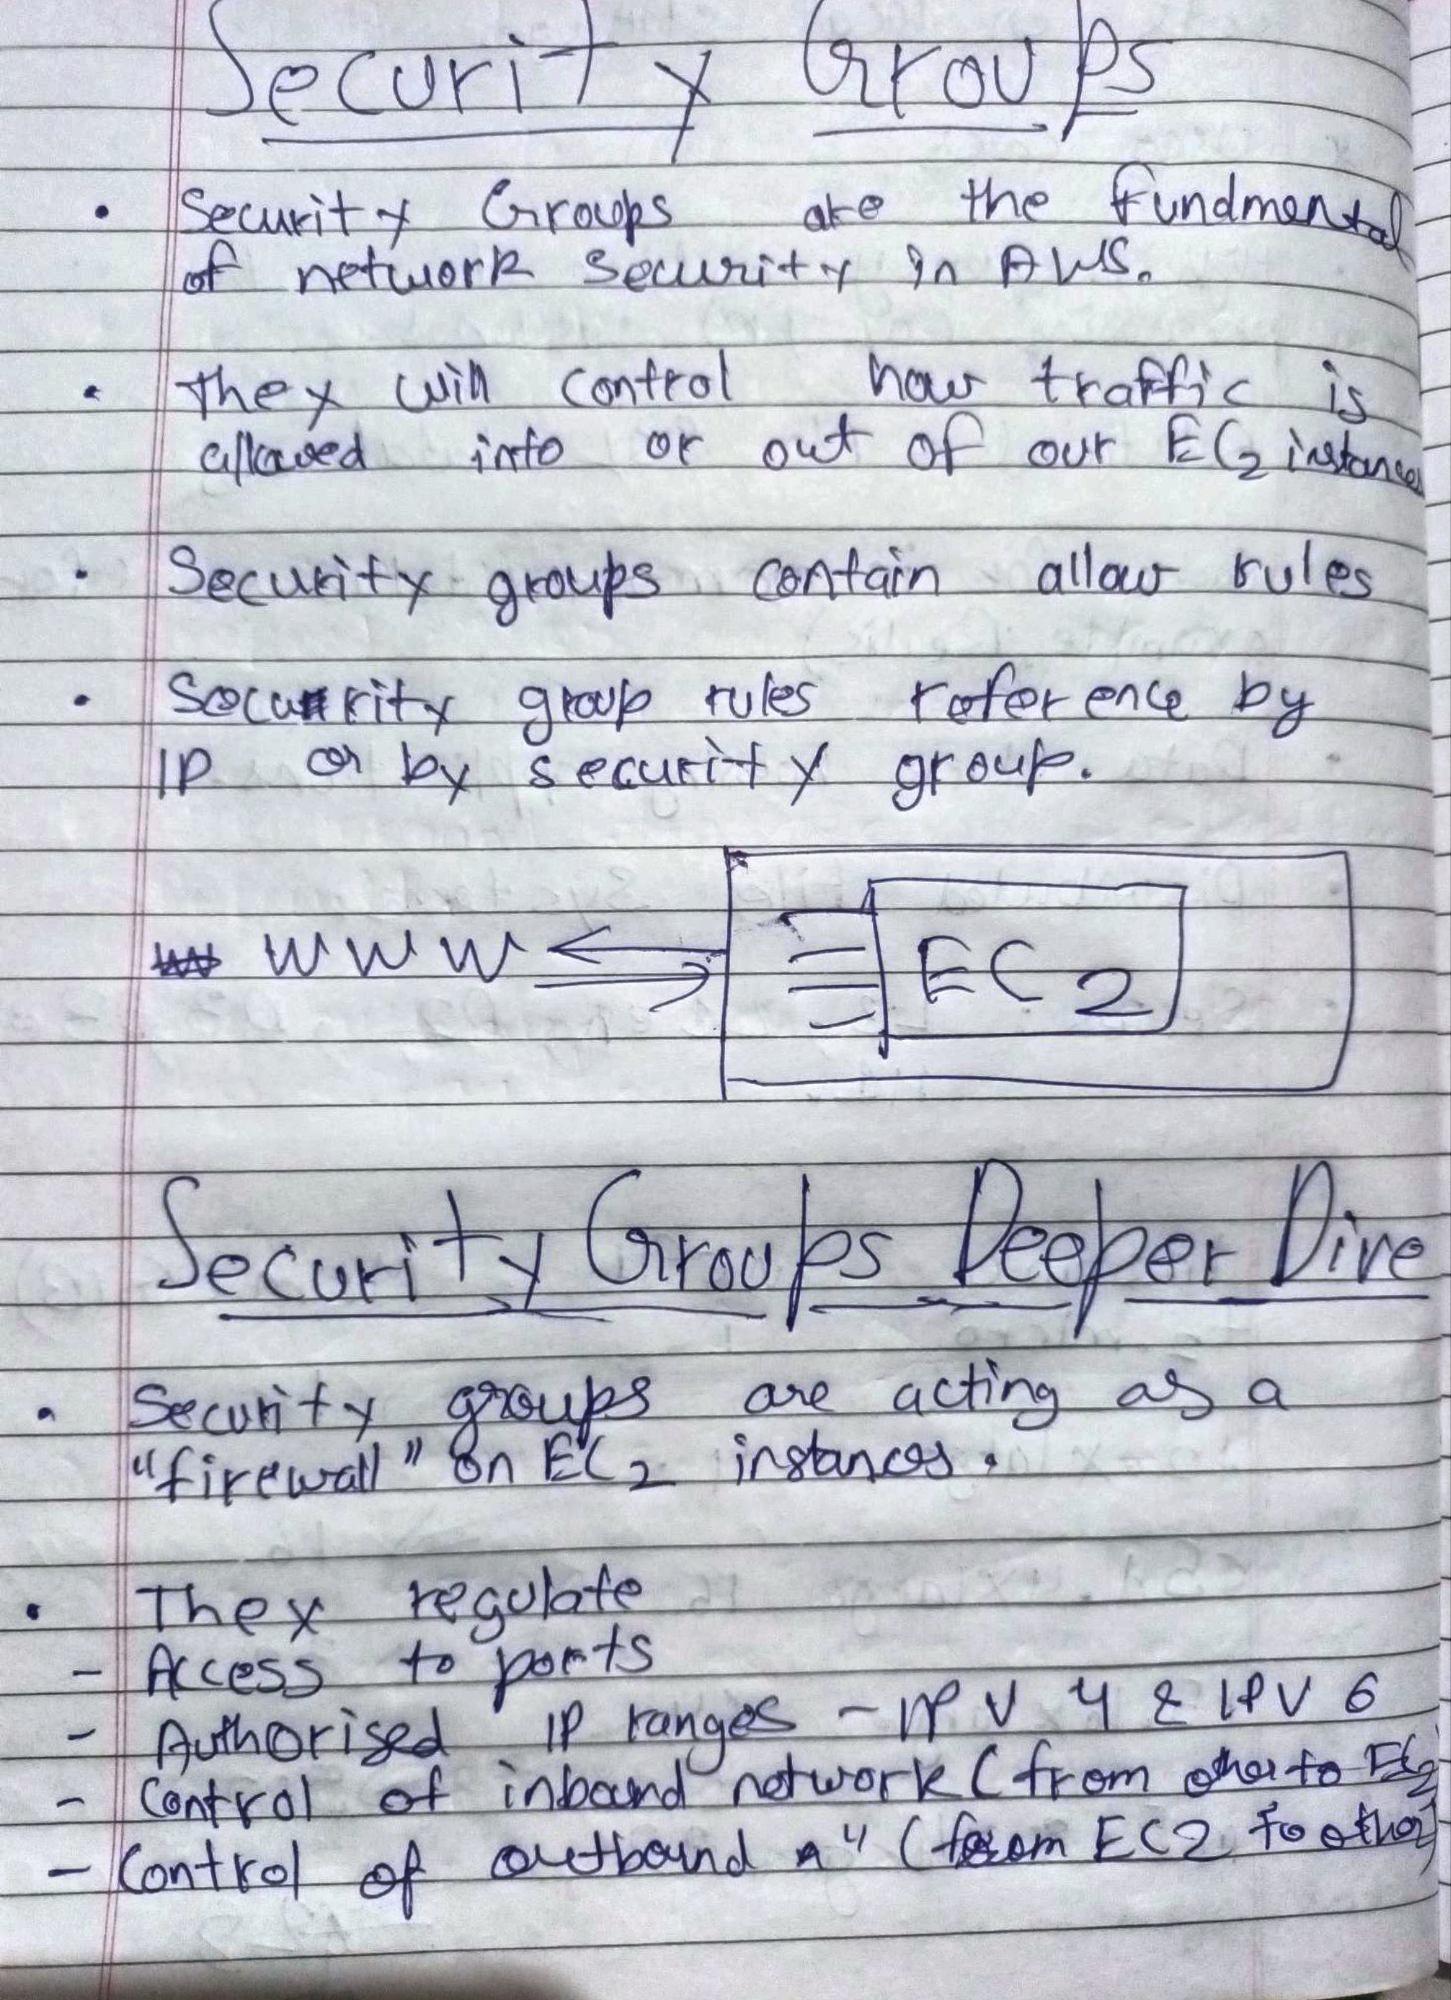 Security Groups
• Security Groups are the fundmental
of network security in AWS.
• They will control how traffic is
allowed into or out of our EC2 instances
• Security groups contain allow rules
• Security group rules reference by
IP or by security group.
WWW EC2
Security Groups Deeper Dive
• Security groups are acting as a
"firewall" on EC2 instances.
• They regulate
- Access to ports
- Authorised IP ranges - IPV4 & IPV6
- Control of inbound network (from other to EC2
- Control of outbound " (from EC2 to other)